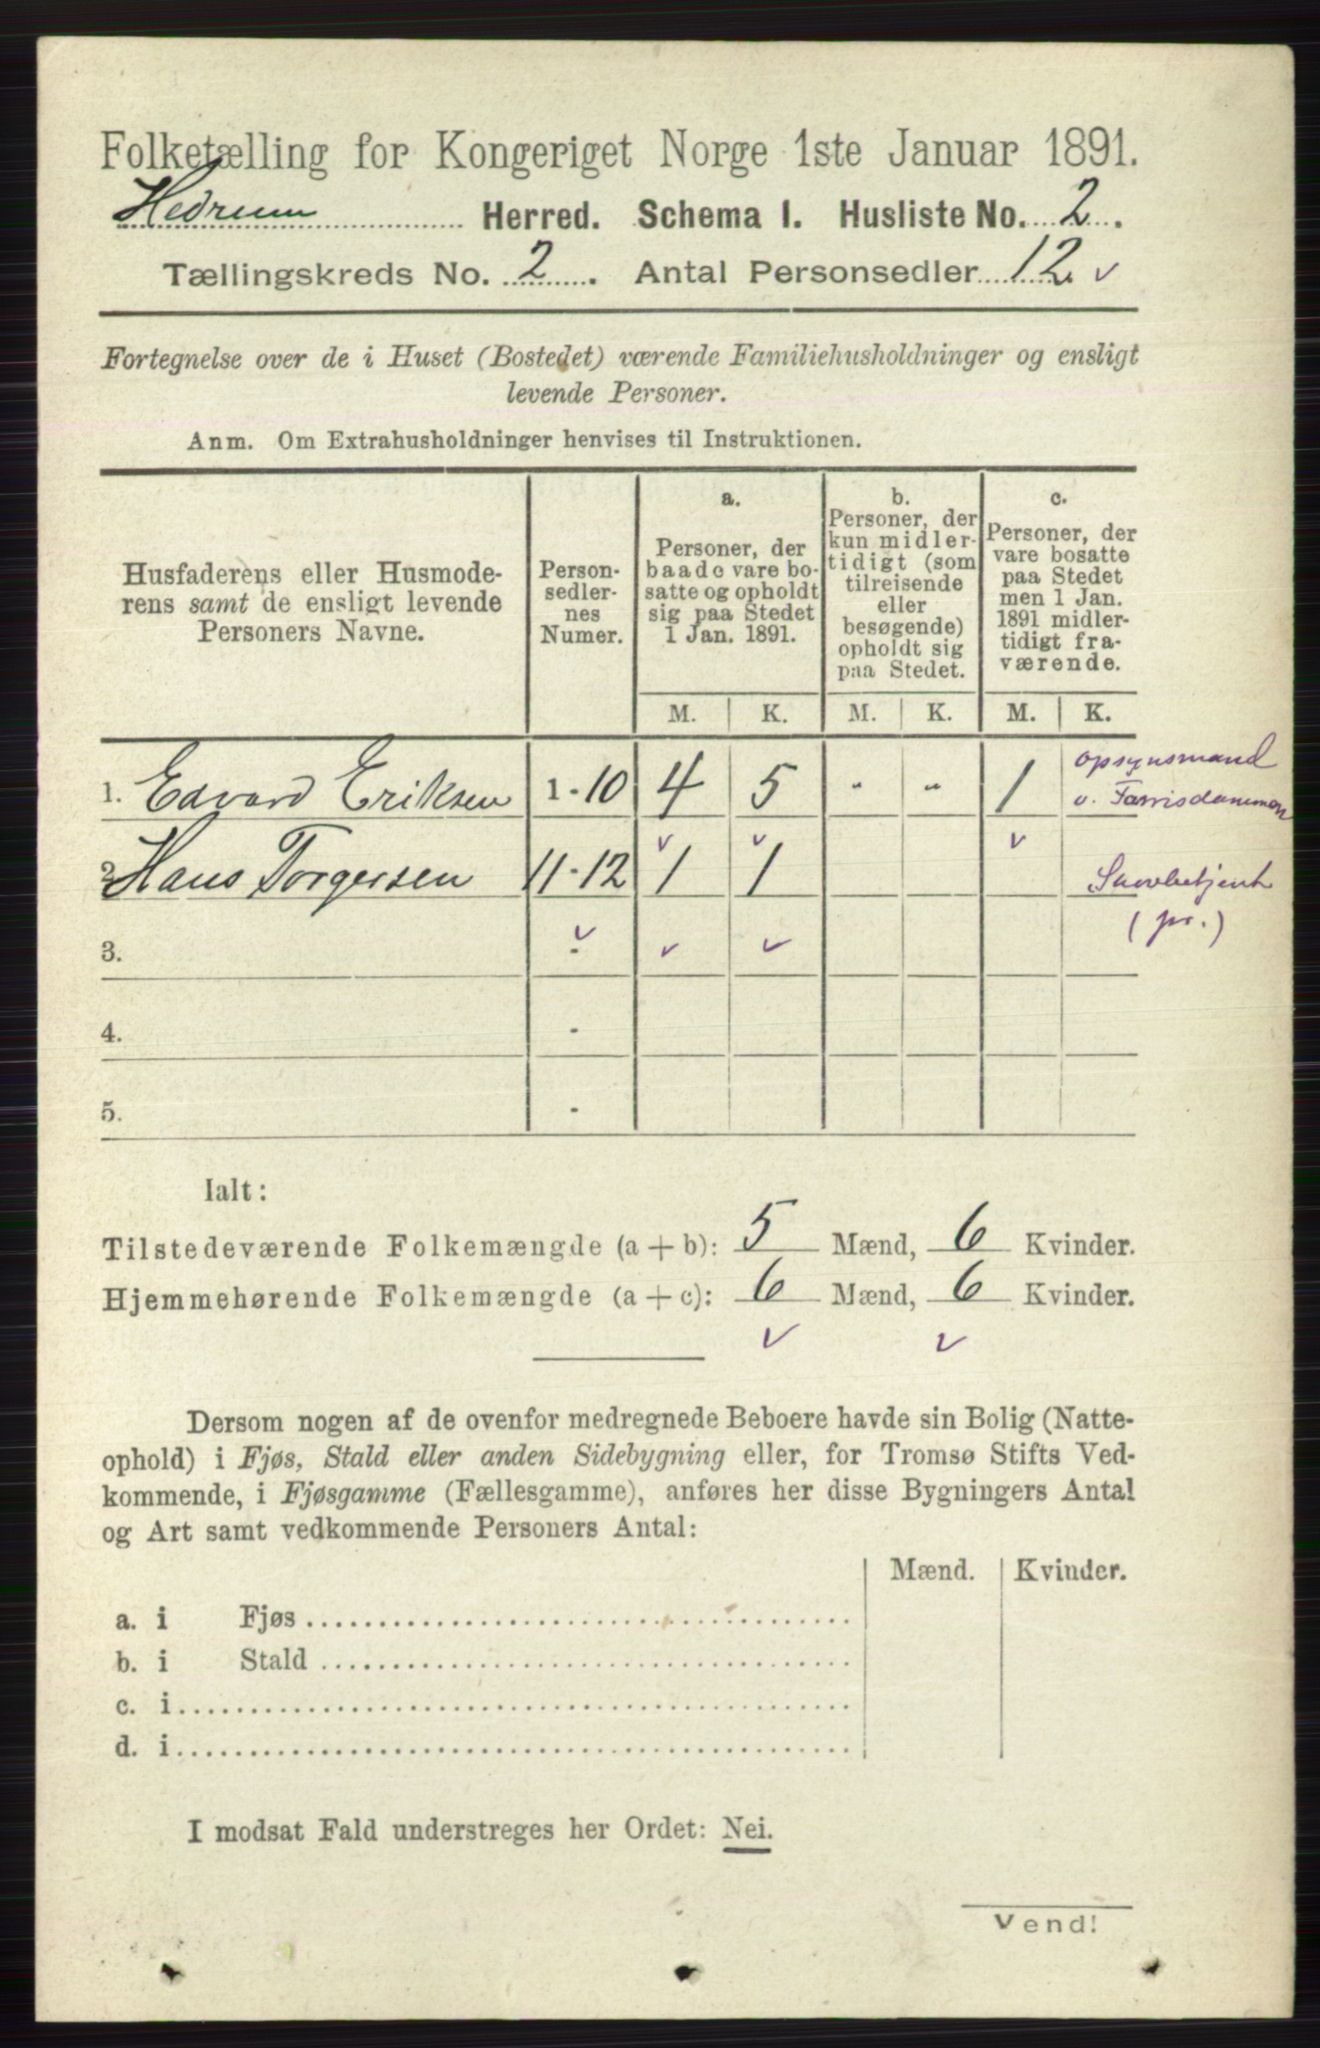 Folketælling for Kongeriget Norge 1ste Januar 1891.
Hedrum Herred. Schema I. Husliste No. 2.
Tællingskreds No. 2. Antal Personsedler 12. v
Fortegnelse over de i Huset (Bostedet) værende Familiehusholdninger og ensligt
levende Personer.
Anm. Om Extrahusholdninger henvises til Instruktionen.
Husfaderens eller Husmode-
rens samt de ensligt levende
Personers Navne.
Person-
sedler-
nes
Numer.
a.
Personer, der
baade vare bo-
satte og opholdt
sig paa Stedet
1 Jan. 1891.
b.
Personer, der
kun midler-
tidigt (som
tilreisende
eller
besøgende)
opholdt sig
paa Stedet.
c.
Personer, der
vare bosatte
paa Stedet
men 1 Jan.
1891 midler-
tidigt fra-
værende.
M. K. M. K. M. K.
1. Edvard Eriksen 1-10 4 5 - - 1 opsynsmand
v. Farrisdammen
v v v
2. Hans Torgersen 11-12 1 1 Skovbetjent
(pr.)
3. v - v v
4. -
5. -
Ialt:
Tilstedeværende Folkemængde (a + b): 5 Mænd, 6 Kvinder.
Hjemmehørende Folkemængde (a + c): 6 Mænd, 6 Kvinder.
v v
Dersom nogen af de ovenfor medregnede Beboere havde sin Bolig (Natte-
ophold) i Fjøs, Stald eller anden Sidebygning eller, for Tromsø Stifts Ved-
kommende, i Fjøsgamme (Fællesgamme), anføres her disse Bygningers Antal
og Art samt vedkommende Personers Antal:
Mænd. Kvinder.
a. i Fjøs
b. i Stald
c. i
d. i
I modsat Fald understreges her Ordet: Nei.
Vend!